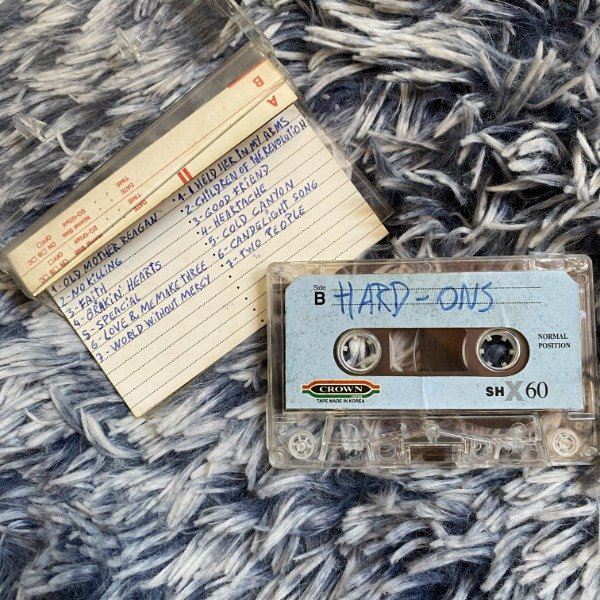 B
A
DATE
TIME
DATE
TIME
1- OLD MOTHER REAGAN
2- NO KILLING
3- FAITH
4- BRAKIN' HEARTS
5- SPEACIAL
6- LOVE & ME MAKE THREE
7- WORLD WITHOUT MERCY
1- I HELD HER IN MY ARMS
2- CHILDREN OF THE REVOLUTION
3- GOOD FRIEND
4- HEARTACHE
5- COLD CANYON
6- CANDLELIGHT SONG
7- TWO PEOPLE
Side
B HARD-ONS
NORMAL
POSITION
CROWN
JAPAN
TAPE MADE IN KOREA
SHX60